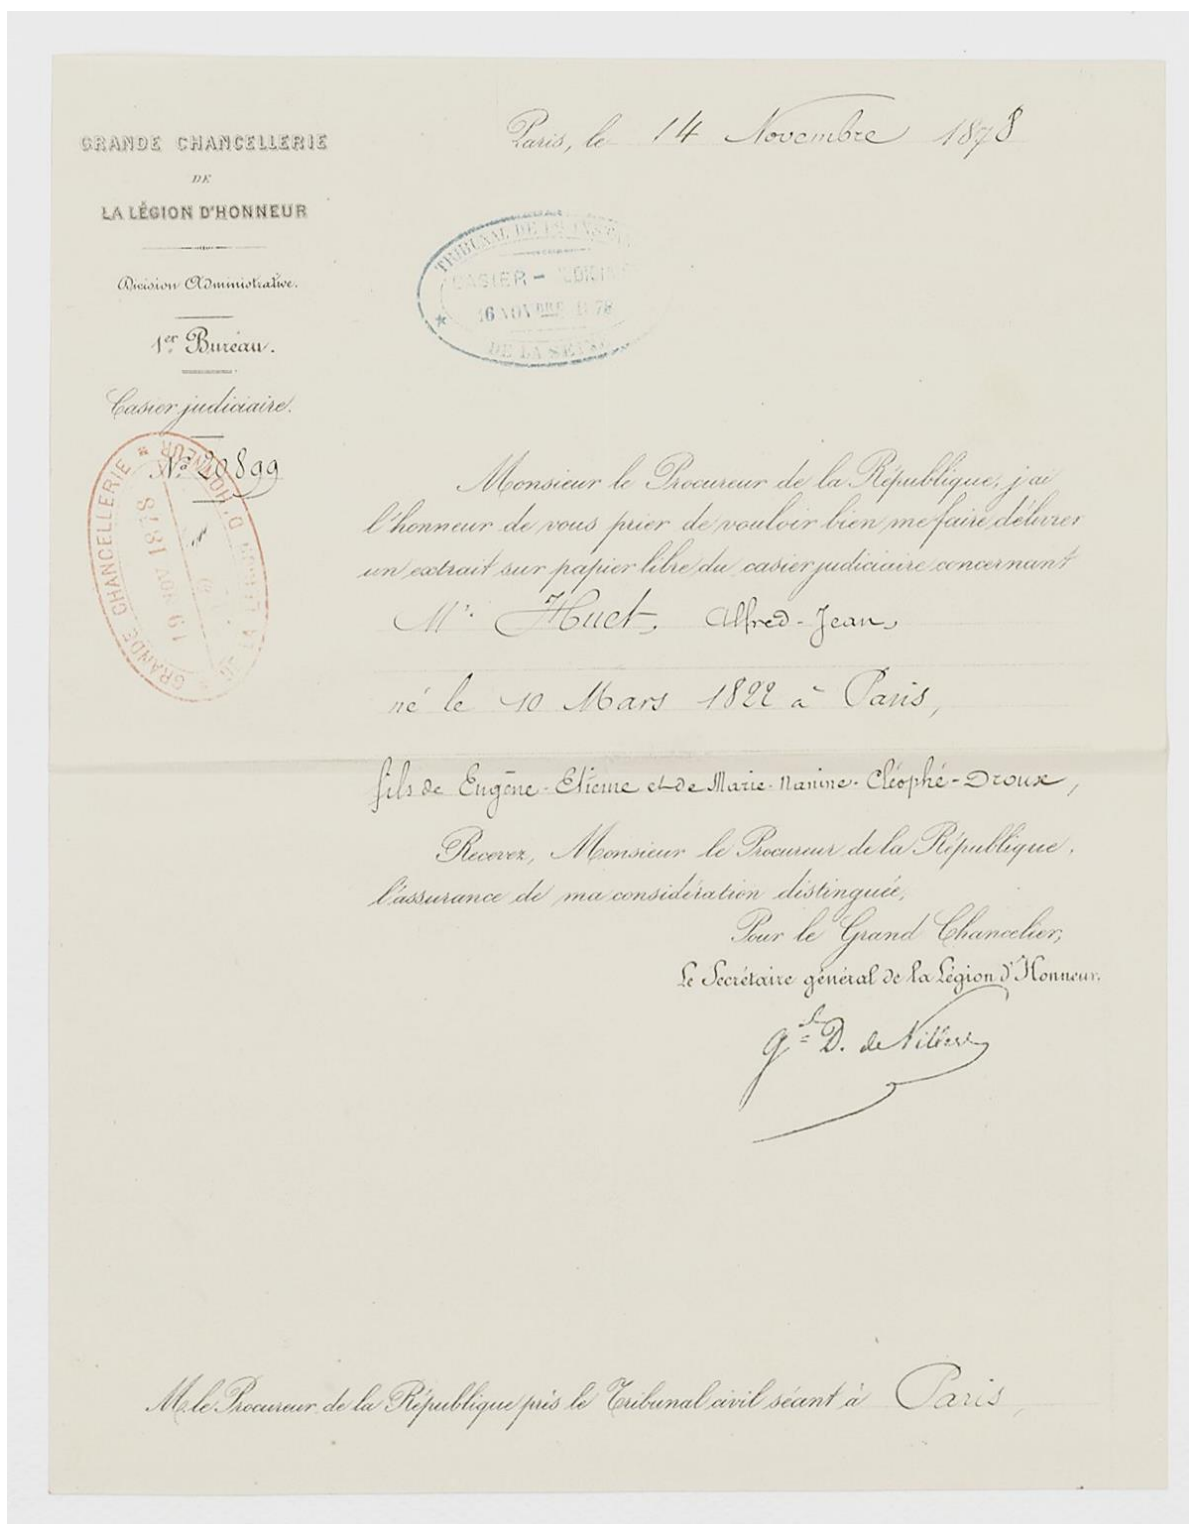 GRANDE CHANCELLERIE
DE
LA LÉGION D'HONNEUR
Division Administrative.
1er Bureau.
Casier judiciaire.
No 20899
GRANDE CHANCELLERIE * DE LA LEGION D'HONNEUR *
19 NOV 1878
Paris, le 14 Novembre 1878
TRIBUNAL DE
CASIER - JUDICI
16 NOVBRE 1878
DE LA SEINE
Monsieur le Procureur de la République, j'ai
l'honneur de vous prier de vouloir bien me faire délivrer
un extrait sur papier libre du casier judiciaire concernant
Mr. Huet, Alfred-Jean,
né le 10 Mars 1822 à Paris,
fils de Eugène-Etienne et de Marie-Nanine-Cléophé-Droux,
Recevez, Monsieur le Procureur de la République,
l'assurance de ma considération distinguée.
Pour le Grand Chancelier,
Le Secrétaire général de la Légion d'Honneur.
Gal D. de
M. le Procureur de la République près le Tribunal civil séant à Paris,